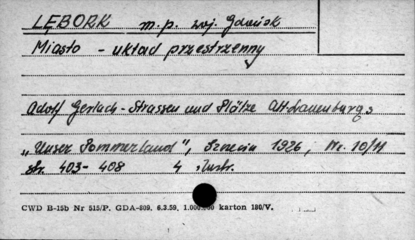 LĘBORK m.p. woj. Gdańsk
Miasto - układ przestrzenny
Adolf Gerlach - Strassen und Plätze Alt-Lauenburgs
„Unser Pommerland", Szczecin 1926, Nr. 10/11
str. 403-408 4 ilustr.
CWD B-15b Nr 515/P. GDA-809. 6.3.59, 1.000.000 karton 180/V.